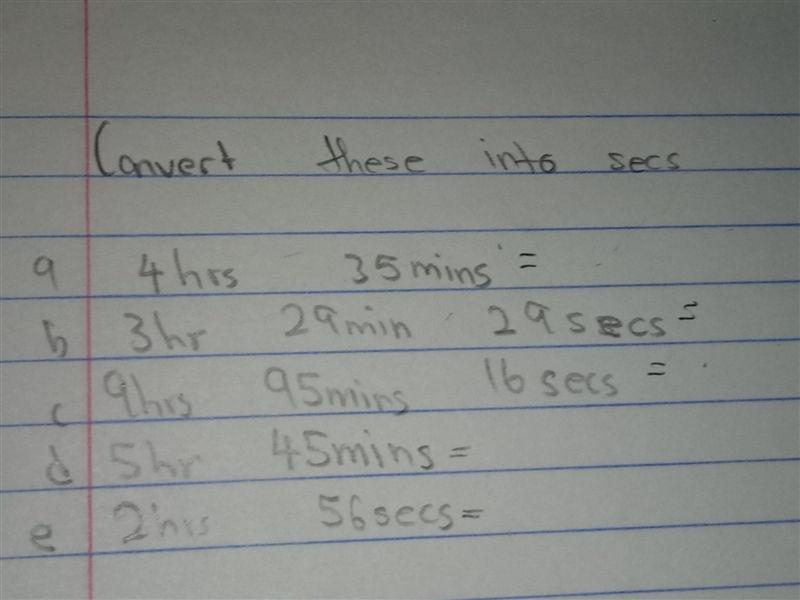 Convert these into secs
a 4hrs 35mins =
b 3hr 29min 29secs =
c 9hrs 95mins 16secs =
d 5hr 45mins =
e 2hrs 56secs =